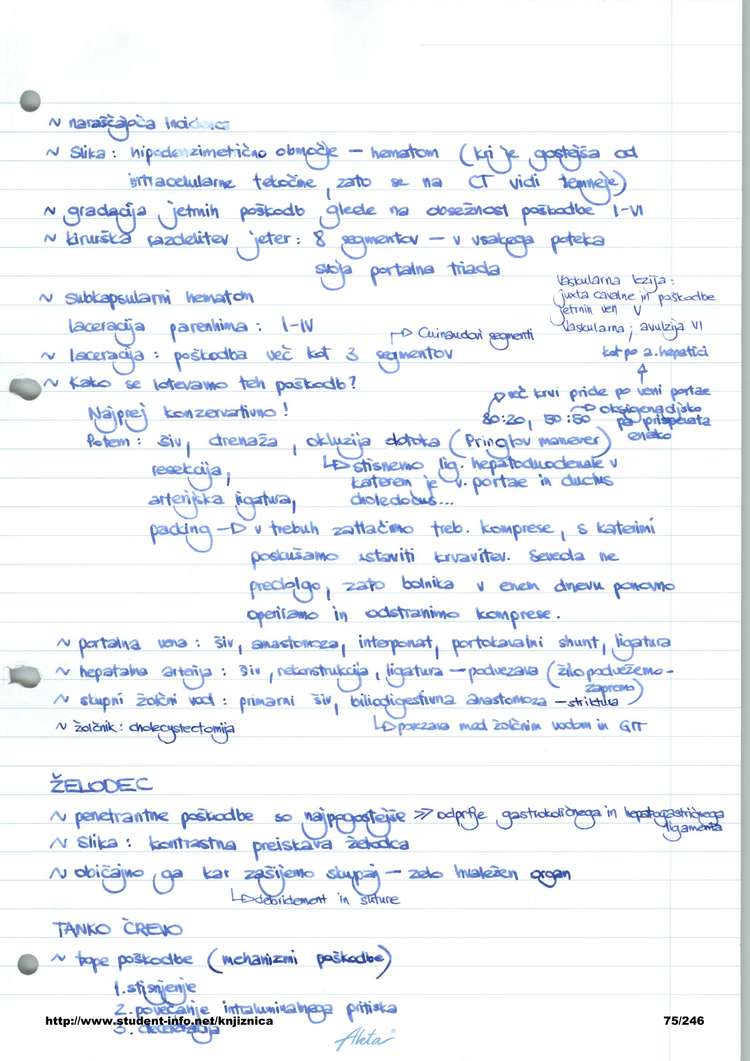 ~ naraščajoča incidenca
~ Slika : hipodenzimetično območje – hematom (kri je gostejša od
intracelularne tekočne, zato se na CT vidi temneje)
~ gradacija jetrnih poškodb glede na obsežnost poškodbe I-VI
~ kirurška razdelitev jeter : 8 segmentov – v vsakega poteka
svoja portalna triada
Vaskularna lezija :
juxta cavalne in poškodbe
jetrnih ven V
Vaskularna ; avulzija VI
~ subkapsularni hematom
laceracija parenhima : I-IV
Cuinaudovi segmenti
~ laceracija : poškodba več kot 3 segmentov
kot po a.hepatici
~ Kako se lotevamo teh poškodb?
več krvi pride po veni portae
Najprej konzervativno!
80:20, 50:50
oksigenacijsko
pa prispevata
enako
Potem : šiv, drenaža, okluzija dotoka (Pringlov manever)
stisnemo lig. hepatoduodenale v
katerem je v. portae in ductus
choledocus...
resekcija,
arterijska ligatura,
packing → v trebuh zatlačimo treb. komprese, s katerimi
poskušamo ustaviti krvavitev. Seveda ne
predolgo, zato bolnika v enem dnevu ponovno
operiramo in odstranimo komprese.
~ portalna vena : šiv, anastomoza, interponat, portokavalni shunt, ligatura
~ hepatalna arterija : šiv, rekonstrukcija, ligatura – podvezava (žilo podvežemo -
zapremo)
~ skupni žolčni vod : primarni šiv, biliodigestivna anastomoza – striktura
~ žolčnik : cholecystectomija
povezava med žolčnim vodom in GIT
ŽELODEC
~ penetrantne poškodbe so najpogostejše >> odprtje gastrokoličnega in hepatogastričnega
ligamenta
~ Slika : kontrastna preiskava želodca
~ običajno ga kar zašijemo skupaj – zelo hvaležen organ
debridement in suture
TANKO ČREVO
~ tope poškodbe (mehanizmi poškodbe)
1. stisnjenje
2. povečanje intraluminalnega pritiska
http://www.student-info.net/knjiznica 75/246
3. deceleracija
Akta